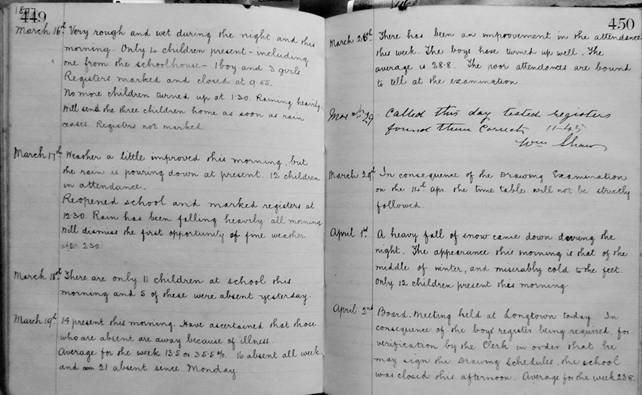 449
March 16th Very rough and wet during the night and this
morning. Only 4 children present - including
one from the schoolhouse - 1 boy and 3 girls
Registers marked and closed at 9.55.
No more children turned up at 1:30. Raining heavily
Will send the three children home as soon as rain
ceases. Registers not marked
March 17th Weather a little improved this morning, but
the rain is pouring down at present. 12 children
in attendance.
Reopened school and marked registers at
12.30. Rain has been falling heavily all morning
Will dismiss the first opportunity of fine weather
after 2.30.
March 18th There are only 11 children at school this
morning and 5 of these were absent yesterday.
March 19th 14 present this morning. Have ascertained that those
who are absent are away because of illness.
Average for the week 12.5 or 35.5%. 16 absent all week
and 21 absent since Monday
450
March 26th There has been an improvement in the attendance
this week. The boys have turned up well. The
average is 28.8. The poor attendances are bound
to tell at the examination
Mar 29 Called this day tested registers
found them Correct 11-45
Wm Shaw
March 29th In consequence of the Drawing Examination
on the 11th Apr. the time table will not be strictly
followed.
April 1st A heavy fall of snow came down during the
night. The appearance this morning is that of the
middle of winter, and miserably cold to the feet.
Only 12 children present this morning
April 2nd Board Meeting held at Longtown today. In
consequence of the boys register being required, for
verification by the Clerk in order that he
may sign the Drawing Schedules, the school
was closed this afternoon. Average for the week 23.8.